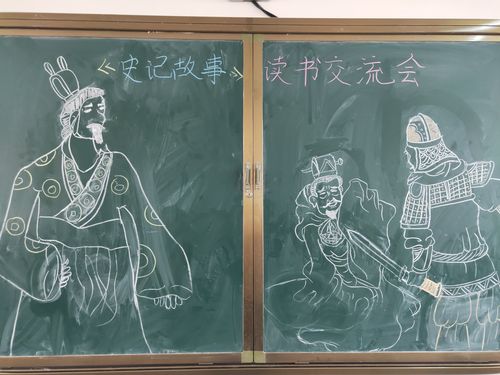 《史记故事》读书交流会